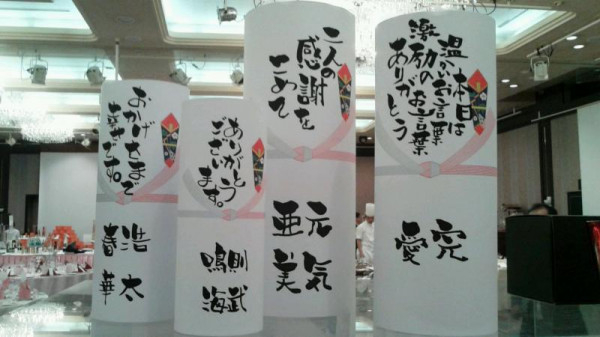 おかげさまで
幸せです。
浩太
春華
ありがとう
ございます。
則武
鳴海
二人の
感謝を
こめて
元気
亜美
本日は
温かいお言葉
激励のお言葉
ありがとう
完
愛